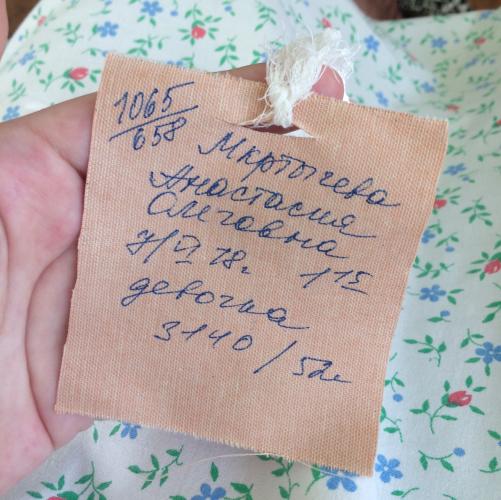 1065/658
Мкртычева
Анастасия
Олеговна
7/VI 18г 1 15
девочка
3140 / 52